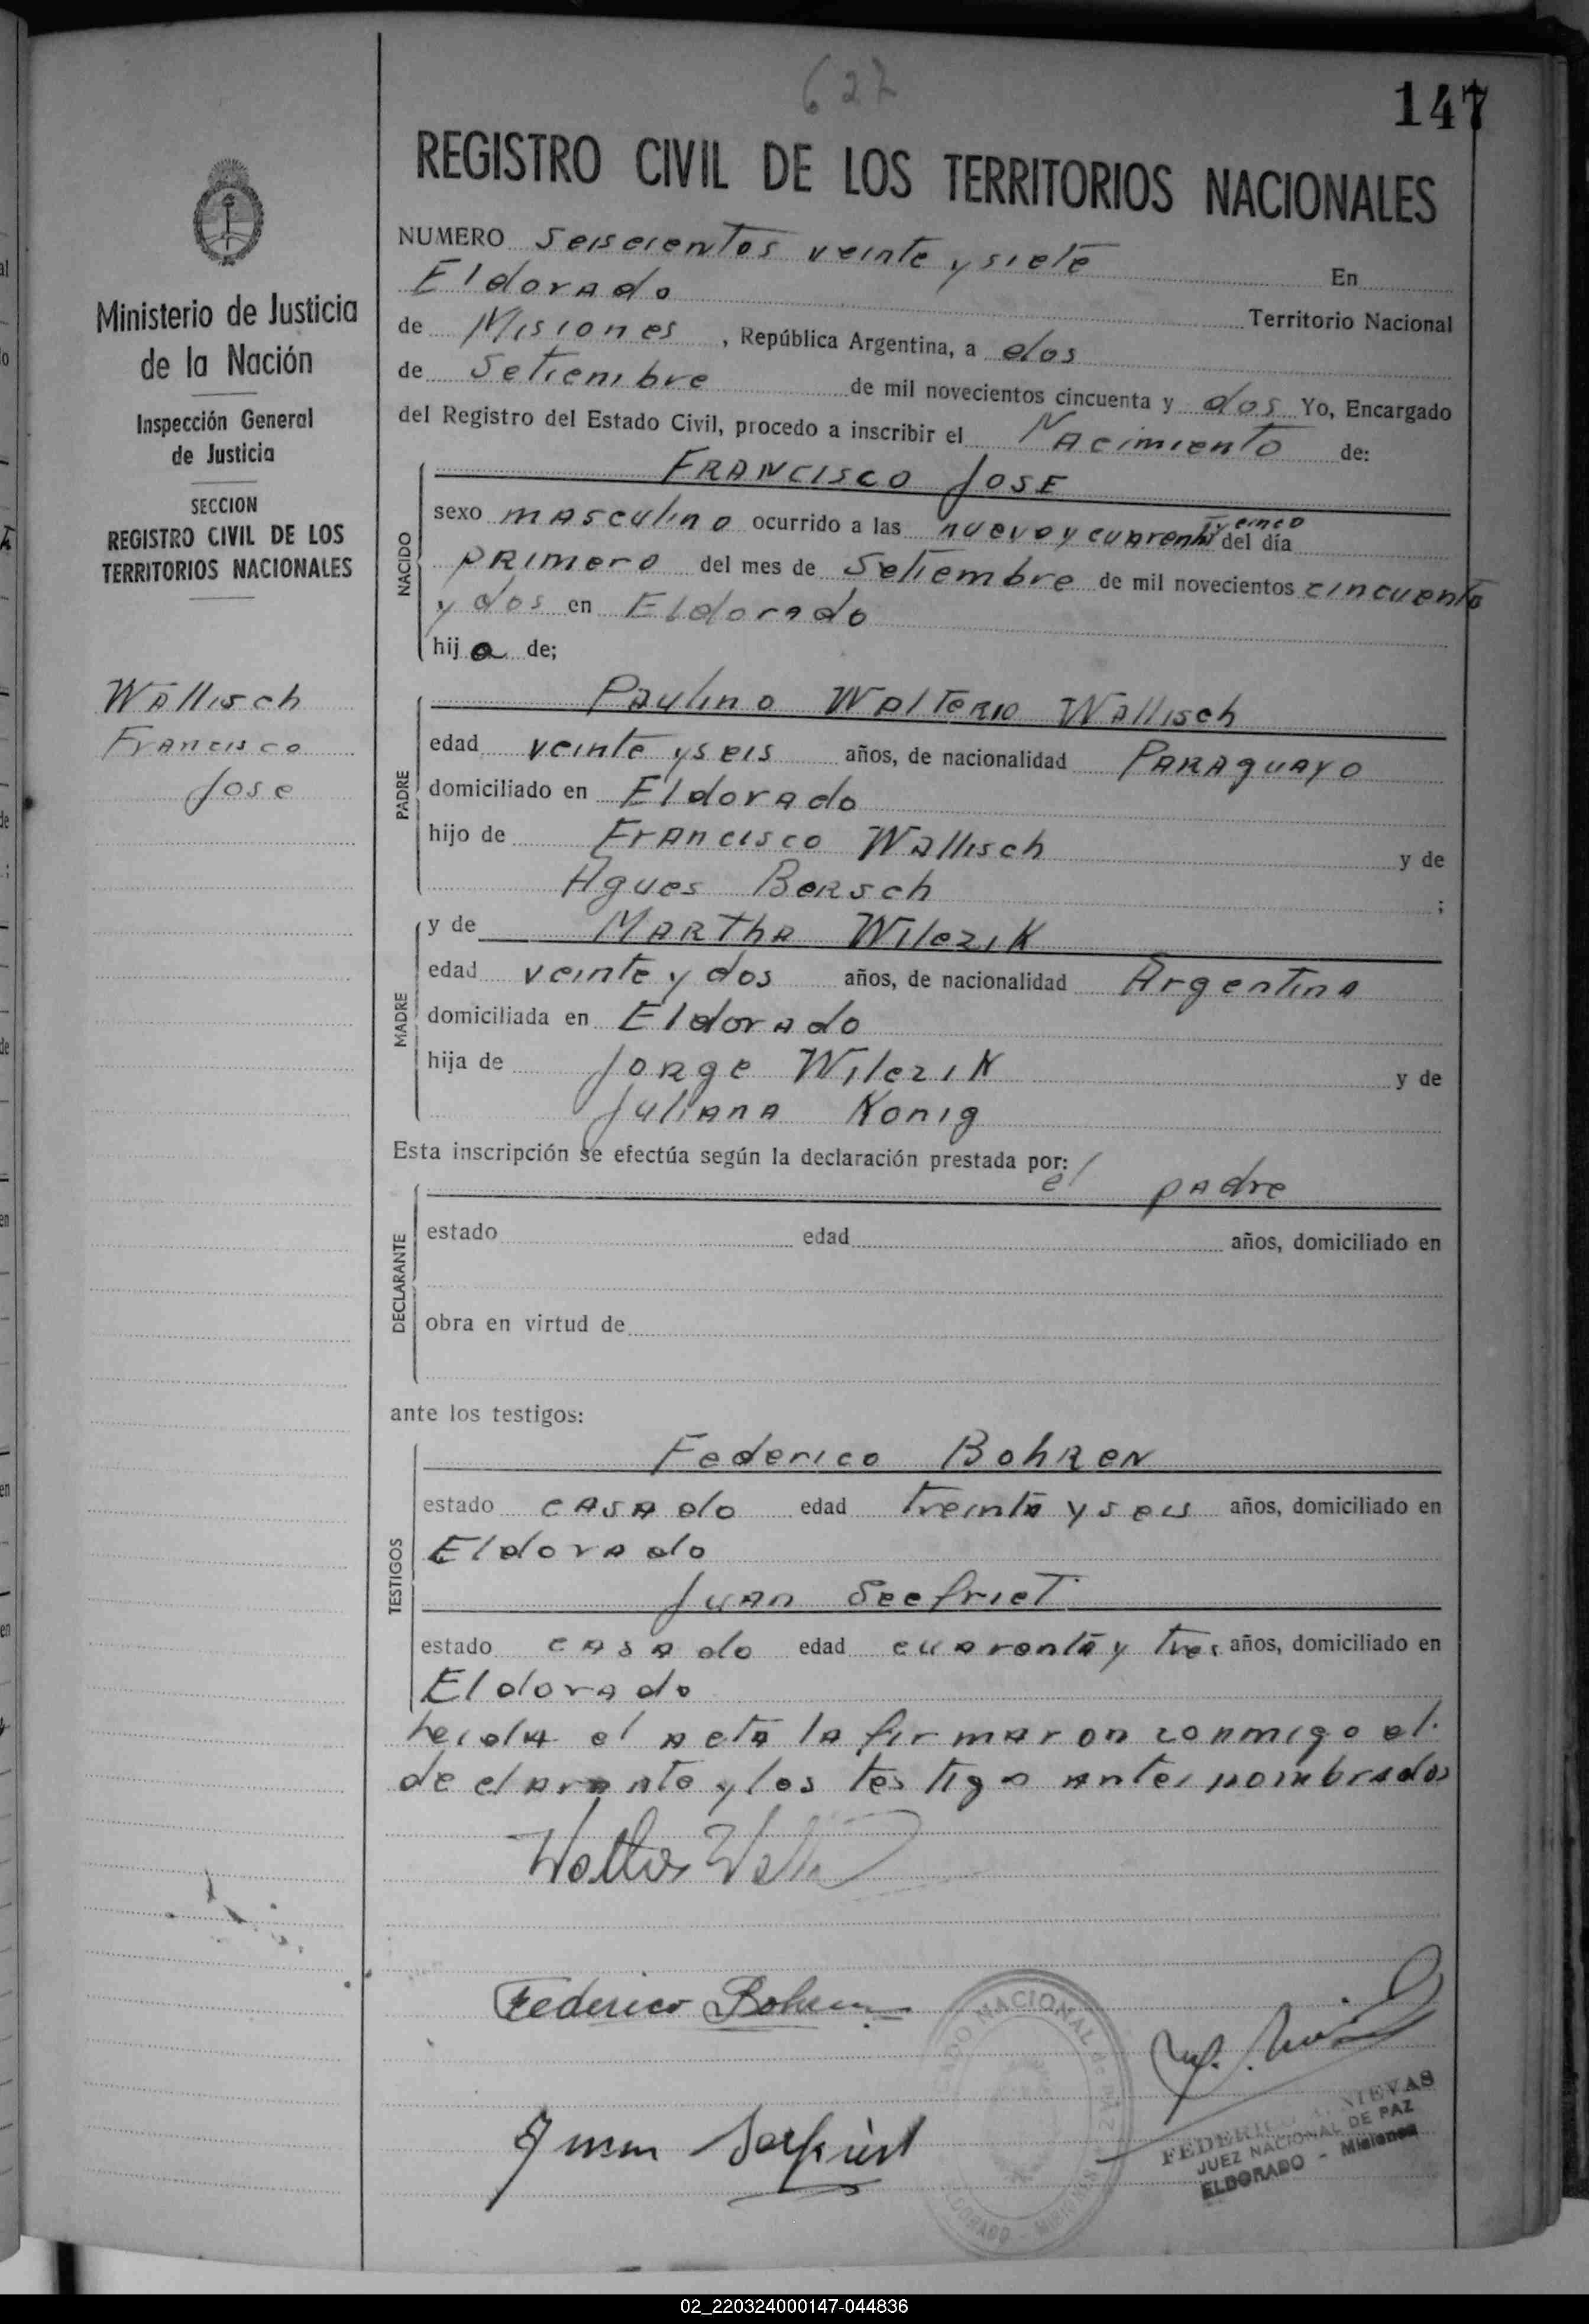 627
147
REGISTRO CIVIL DE LOS TERRITORIOS NACIONALES
Ministerio de Justicia
de la Nación
Inspección General
de Justicia
SECCION
REGISTRO CIVIL DE LOS
TERRITORIOS NACIONALES
Wallisch
Francisco
Jose
NUMERO seiscientos veinte y siete En
Eldorado Territorio Nacional
de Misiones, República Argentina, a dos
de Setiembre de mil novecientos cincuenta y dos Yo, Encargado
del Registro del Estado Civil, procedo a inscribir el Nacimiento de:
NACIDO
FRANCISCO JOSE
sexo masculino ocurrido a las nueve y cuarenta y cinco del día
primero del mes de Setiembre de mil novecientos cincuenta
y dos en Eldorado
hijo de;
PADRE
Paulino Walterio Wallisch
edad veinte y seis años, de nacionalidad Paraguayo
domiciliado en Eldorado
hijo de Francisco Wallisch y de
Agues Bersch ;
MADRE
y de Martha Wilczik
edad veinte y dos años, de nacionalidad Argentina
domiciliada en Eldorado
hija de Jorge Wilczik y de
Juliana Konig
Esta inscripción se efectúa según la declaración prestada por: el padre
DECLARANTE
estado edad años, domiciliado en
obra en virtud de
ante los testigos:
TESTIGOS
Federico Bohren
estado casado edad treinta y seis años, domiciliado en
Eldorado
Juan Seefriet
estado casado edad cuarenta y tres años, domiciliado en
Eldorado
Leida el acta la firmaron conmigo el
declarante y los testigo antes nombrados
Federico Bohren
Juan Seefriet
NACIONAL de PAZ
FEDERICO NIEVAS
JUEZ NACIONAL DE PAZ
ELDORADO - Misiones
02_220324000147-044836